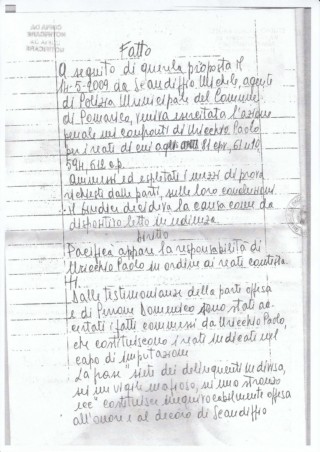 Fatto
A seguito di querela proposta il
14-5-2009 da Scandiffio Michele, agente
di Polizia Municipale del Comune
di Pomarico, veniva esercitata l'azione
penale nei confronti di Uricchio Paolo
per i reati di cui agli artt. 81 cpv, 61 n 10
594, 612 c.p.
Ammessi ed espletati i mezzi di prova
richiesti dalle parti, sulle loro conclusioni
il Giudice decideva la causa come da
dispositivo letto in udienza.
Diritto
Pacifica appare la responsabilità di
Uricchio Paolo in ordine ai reati contesta
ti.
Dalle testimonianze della parte offesa
e di Perrone Domenico sono stati ac-
certati i fatti commessi da Uricchio Paolo,
che costituiscono i reati indicati nel
capo di imputazione
La frase "siete dei delinquenti in divisa,
sei un vigile mafioso, sei uno stronzo
ecc" costituisce inequivocabilmente offesa
all'onore e al decoro di Scandiffio